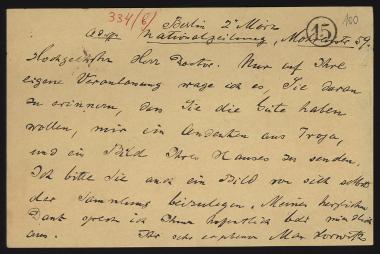 334/(6)
Berlin 2 März
(15)
100
Adr. Nationalzeitung, Mohrenstr. 59.
Hochgeehrter Herr Doctor. Nur auf Ihre
eigene Veranlassung wage ich es, Sie daran
zu erinnern, dass Sie die Güte haben
wollen, mir ein Andenken aus Troja,
und ein Bild Ihres Hauses zu senden.
Ich bitte Sie auch ein Bild von sich selbst
der Sammlung beizulegen. Meinen herzlichen
Dank spreche ich Ihnen hoffentlich bald mündlich
aus. Ihr sehr ergebener Max Horwitz